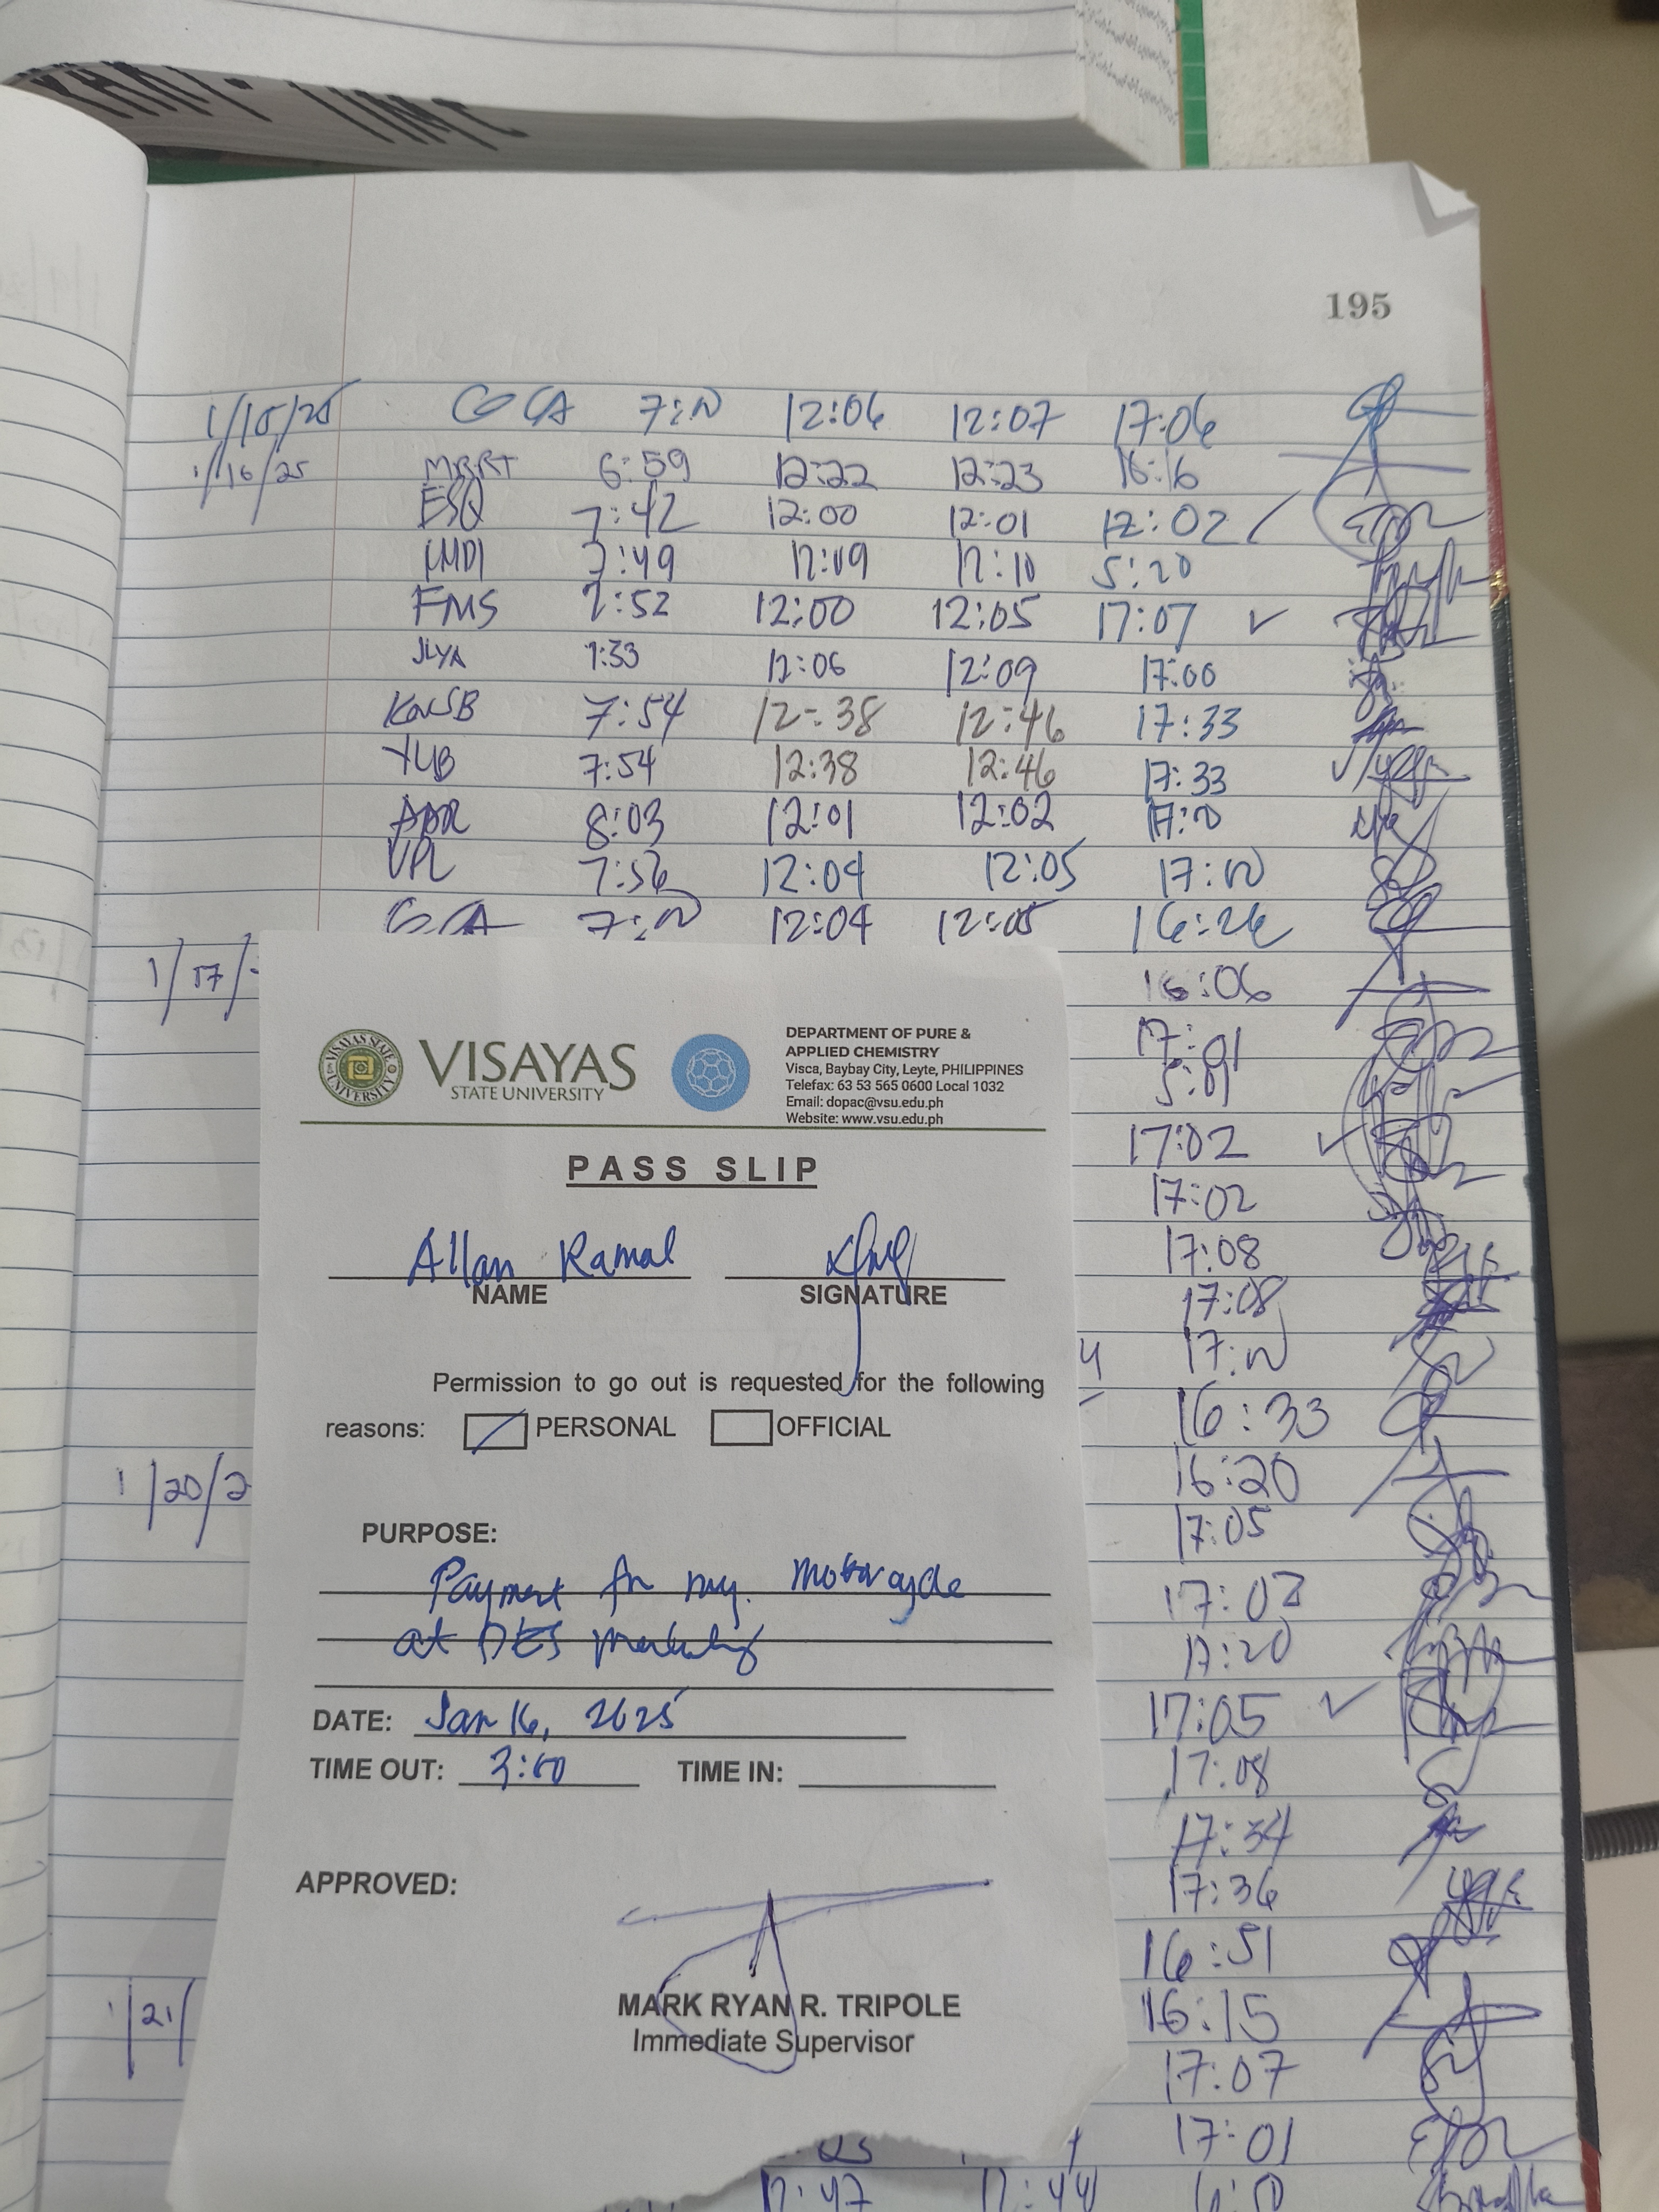 195
1/15/25 GCA 12:06 12:07 17:06
1/16/25 MRRT 6:59 12:22 12:23 16:16
ESQ 7:42 12:00 12:01 12:02
7:49 12:09 12:10 5:20
FMS 7:52 12:00 12:05 17:07
JLYA 7:33 12:06 12:09 17:00
7:54 12:38 12:46 17:33
YUB 7:54 12:38 12:46 17:33
8:03 12:01 12:02
VPL 7:56 12:04 12:05
GCA 12:04 12:05 16:26
1/17/
16:06
17:01
5:01
17:02
17:02
17:08
17:08
16:33
1/20/2
16:20
17:05
17:20
17:05
17:08
17:34
17:36
16:51
1/21/
16:15
17:07
17:01
12:47 12:44
VISAYAS STATE UNIVERSITY
VISAYAS
STATE UNIVERSITY
DEPARTMENT OF PURE &
APPLIED CHEMISTRY
Visca, Baybay City, Leyte, PHILIPPINES
Telefax: 63 53 565 0600 Local 1032
Email: dopac@vsu.edu.ph
Website: www.vsu.edu.ph
PASS SLIP
Allan Ramal
NAME SIGNATURE
Permission to go out is requested for the following
reasons: PERSONAL OFFICIAL
PURPOSE:
Payment for my Motorcycle
at DES Marketing
DATE: Jan 16, 2025
TIME OUT: 3:00 TIME IN:
APPROVED:
MARK RYAN R. TRIPOLE
Immediate Supervisor